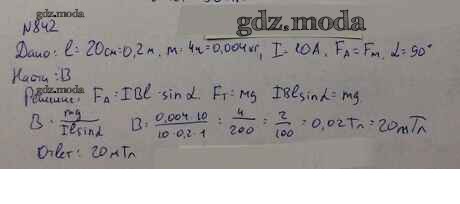 gdz.moda
N842
Дано: l = 20см = 0,2 м, m = 4г = 0,004 кг, I = 10А, Fа = Fт, α = 90°
Найти: B
gdz.moda
Решение: Fа = IBl · sin α. Fт = mg IBl sin α = mg
B = mg / Il sin α B = 0,004·10 / 10·0,2·1 = 4/200 = 2/100 = 0,02Тл = 20мТл
Ответ: 20мТл